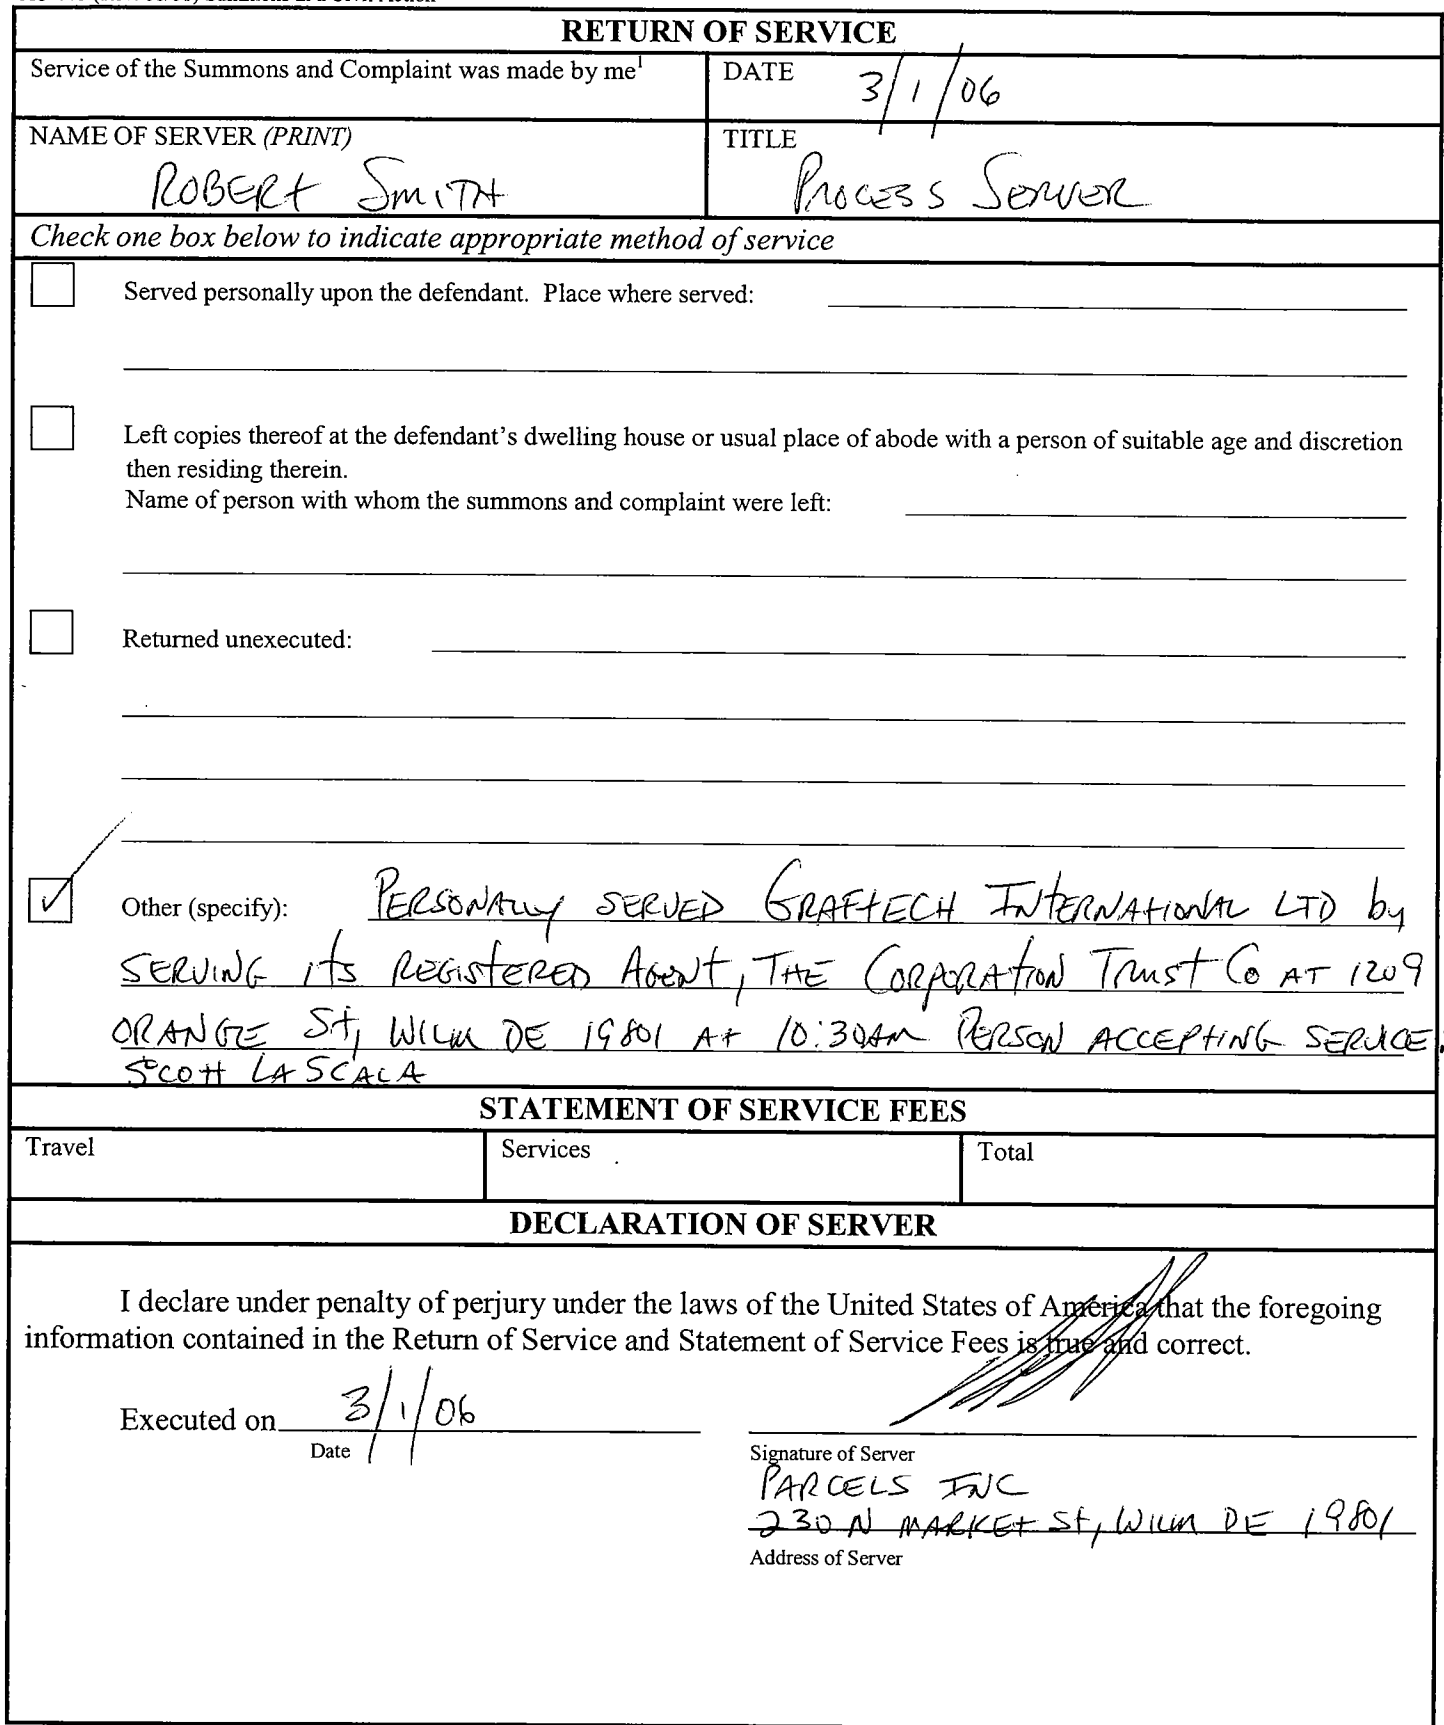 RETURN OF SERVICE
Service of the Summons and Complaint was made by me1
DATE 3/1/06
NAME OF SERVER (PRINT)
ROBERT SMITH
TITLE
PROCESS SERVER
Check one box below to indicate appropriate method of service
Served personally upon the defendant. Place where served:
Left copies thereof at the defendant's dwelling house or usual place of abode with a person of suitable age and discretion
then residing therein.
Name of person with whom the summons and complaint were left:
Returned unexecuted:
✓ Other (specify): PERSONALLY SERVED GRAFTECH INTERNATIONAL LTD by
SERVING its REGISTERED AGENT, THE CORPORATION TRUST CO AT 1209
ORANGE St, WILM DE 19801 AT 10:30AM PERSON ACCEPTING SERVICE:
SCOTT LASCALA
STATEMENT OF SERVICE FEES
Travel
Services
Total
DECLARATION OF SERVER
I declare under penalty of perjury under the laws of the United States of America that the foregoing
information contained in the Return of Service and Statement of Service Fees is true and correct.
Executed on 3/1/06
Date
Signature of Server
PARCELS INC
230 N MARKET St, WILM DE 19801
Address of Server